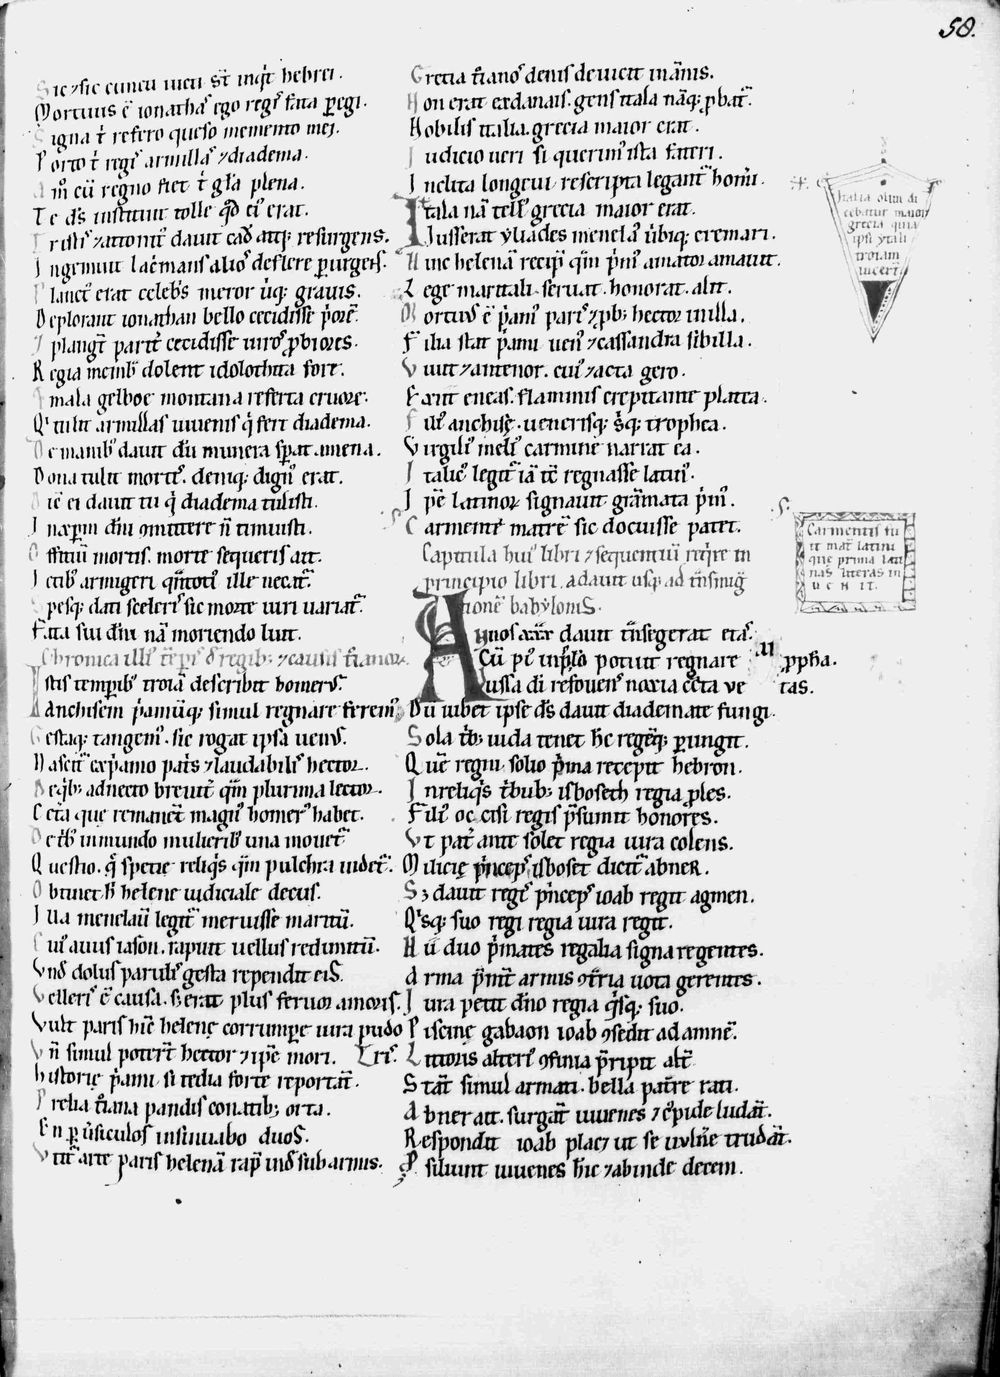 58.
Sic ⁊ sic cuncta vicu st̄ inqͥt hebrei.
Mortuus ē ionathas ego regis fata peregi.
Signa tͥ refero queso memento mei.
Porto tͥ regis armillas ⁊ diadema.
Am̄ cū regno fiet tͥ gl̄a plena.
Te ds̄ instituit tolle qd̄ eiꝰ erat.
Tristis ⁊ attonitꝰ dauit cad atqꝫ resurgens.
Ingemuit lac̄mans alios deflere
Planctꝰ erat celebs meror ubiqꝫ grauis.
Deplorant ionathan bello cecidisse p̄orē.
plangt̄ partͥ cecidisse uiros ꝓbiores.
Regia membra dolent idolothita fore.
mala gelboe montana referta cruore.
Qͥ tulit armillas iuuenis qͥ fert diadema.
De manibꝰ dauit dū munera sperat amena.
Dona tulit mortis. deniqꝫ dignꝰ erat.
ei dauit tu qͥ diadema tulisti.
dn̄i ꝯmittere n̄ timuisti.
Offitiū mortis. morte sequeris ait.
Ictibꝰ armigeri ille necatᷣ.
Spesqꝫ dati sceleris sic morte uiri uariatᷣ.
Fata sui dn̄i nā moriendo luit.
Chronica illiꝰ tꝑis de regibꝫ ⁊ causis
Istis temporibꝰ troiā describit homerus.
Anchisem p̄amūqꝫ simul regnare feremꝰ
Gestaqꝫ tangemꝰ. sic rogat ipsa uenus.
Nascitᷣ ex p̄amo patris ⁊ laudabilis hector.
De qͥbꝫ adnecto breuit̄ qm̄ plurima lector.
Cet̄a que remanent magnꝰ homerꝰ habet.
De tͥbꝰ in mundo mulieribꝰ una mouetᷣ
Questio. qͣ specie reliqͥs qm̄ pulchra uidetᷣ.
Obtinet h̄ helene iudiciale decus.
Illa menelaū legitᷣ meruisse maritū.
Cuiꝰ auus iason. rapuit uellus redimitū.
Vnd̄ dolus paribus gesta rependit eis.
Velleris ē causa. sꝫ erat plus feruor amoris.
Vult paris hinc helenę corrumpe iura pudo
Vn̄ simul poterit hector ⁊ ipse mori. ris.
Historię p̄ami. si tedia forte reportat̄.
Prelia t̄iana pandis conatibꝫ orta.
En ꝑ uͥsiculos insinuabo duos.
Vtitᷣ arte paris helenā rapit inde sub armis.
Grecia t̄ianos denis deuicit in annis.
Non erat ex danais. gens itala nāqꝫ ꝓbatᷣ.
Nobilis italia. grecia maior erat.
Iudicio ueri si querimꝰ ista fateri.
Inclita longeui. rescripta legantᷣ homͥi.
Itala nā tellꝰ grecia maior erat.
Iusserat yliades menelaꝰ ubiqꝫ cremari.
Hinc helenā recipit qm̄ pͥmꝰ amator amauit.
Lege maritali. seruat. honorat. alit.
Mortuus ē p̄amꝰ paris ⁊ ꝓbꝫ hector in illa.
Filia stat p̄ami uenꝰ ⁊ cassandra sibilla.
Viuit ⁊ antenor. cuiꝰ ⁊ acta gero.
Exiit eneas. flammis crepitante platea.
Filiꝰ anchisę. uenerisqꝫ trophea.
Virgiliꝰ meliꝰ carmine narrat ea.
Italiꝰ legitᷣ iā tē regnasse latinꝰ.
Ipē latinor signauit gram̄ata pͥmꝰ.
Carmentē matrē sic docuisse patet.
Capitula huiꝰ libri ⁊ sequentiū reqͥre in
principio libri. a dauit usqꝫ ad
tionē babylonis.
Annos xxx dauit etas.
Cū potiuit regnare ꝓpha.
Iussa di refouens noxia ue tas.
Dū iubet ipse ds̄ dauit diademate fungi.
Sola tribꝫ iuda tenet hē regēqꝫ perungit.
Quē regni solio pͥma recepit hebron.
In reliqͥs tͥbubꝫ isboseth regia proles.
Filiꝰ occisi regis p̄sumit honores.
Vt patͥ ante solet regia iura colens.
Milicię pͥnceps isboset dicitᷣ abner.
Sꝫ dauit regis pͥnceps ioab regit agmen.
Qͥsqꝫ suo regi regia iura regit.
Hii duo pͥmates regalia signa regentes.
Arma p̄mit armis ꝯtͥria uota gerentes.
Iura petit dn̄o regia qͥsqꝫ suo.
Piscinę gabaon ioab ꝯsedit ad amnē.
Littoris alteriꝰ ꝯfinia p̄ripit alt̄.
Stat̄ simul armati. bella patͥre rati.
Abner ait. surgat̄ iuuenes ⁊ cͥpide ludat̄.
Respondit ioab placꝫ ut se uulnͥe trudat̄.
Psiliunt iuuenes hinc ⁊ abinde decem.
Italia olim di
cebatur maior
grecia quia
ipsi ytali
troiam
uicerūt
Carmentis fu
it mat̄ latini
que prima lati
nas literas in
uenit.